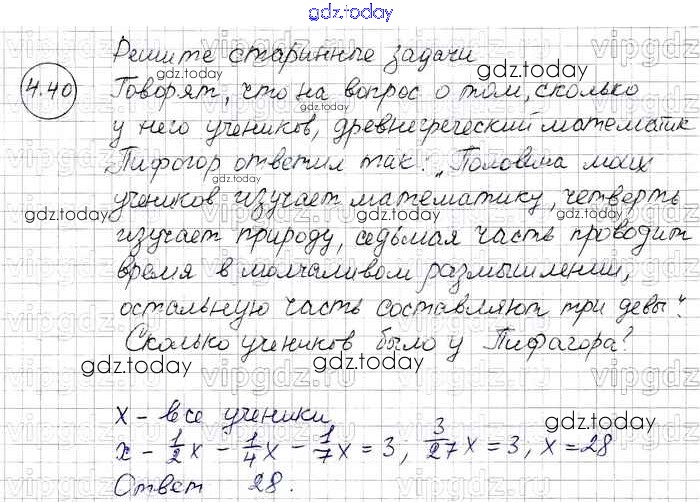 gdz.today
Решите старинные задачи
gdz.today
4.40
Говорят, что на вопрос о том, сколько
у него учеников, древнегреческий математик
gdz.today gdz.today
Пифогор ответил так: „Половина моих
учеников изучает математику, четверть
gdz.today gdz.today gdz.today
изучает природу, седьмая часть проводит
время в молчаливом размышлении,
gdz.today gdz.today
остальную часть составляют три девы".
Сколько учеников было у Пифагора?
gdz.today gdz.today
x - все ученики
gdz.today
x - 1/2 x - 1/4 x - 1/7 x = 3; 3/27 x = 3, x = 28
gdz.today gdz.today
Ответ 28.
vipgdz.ru